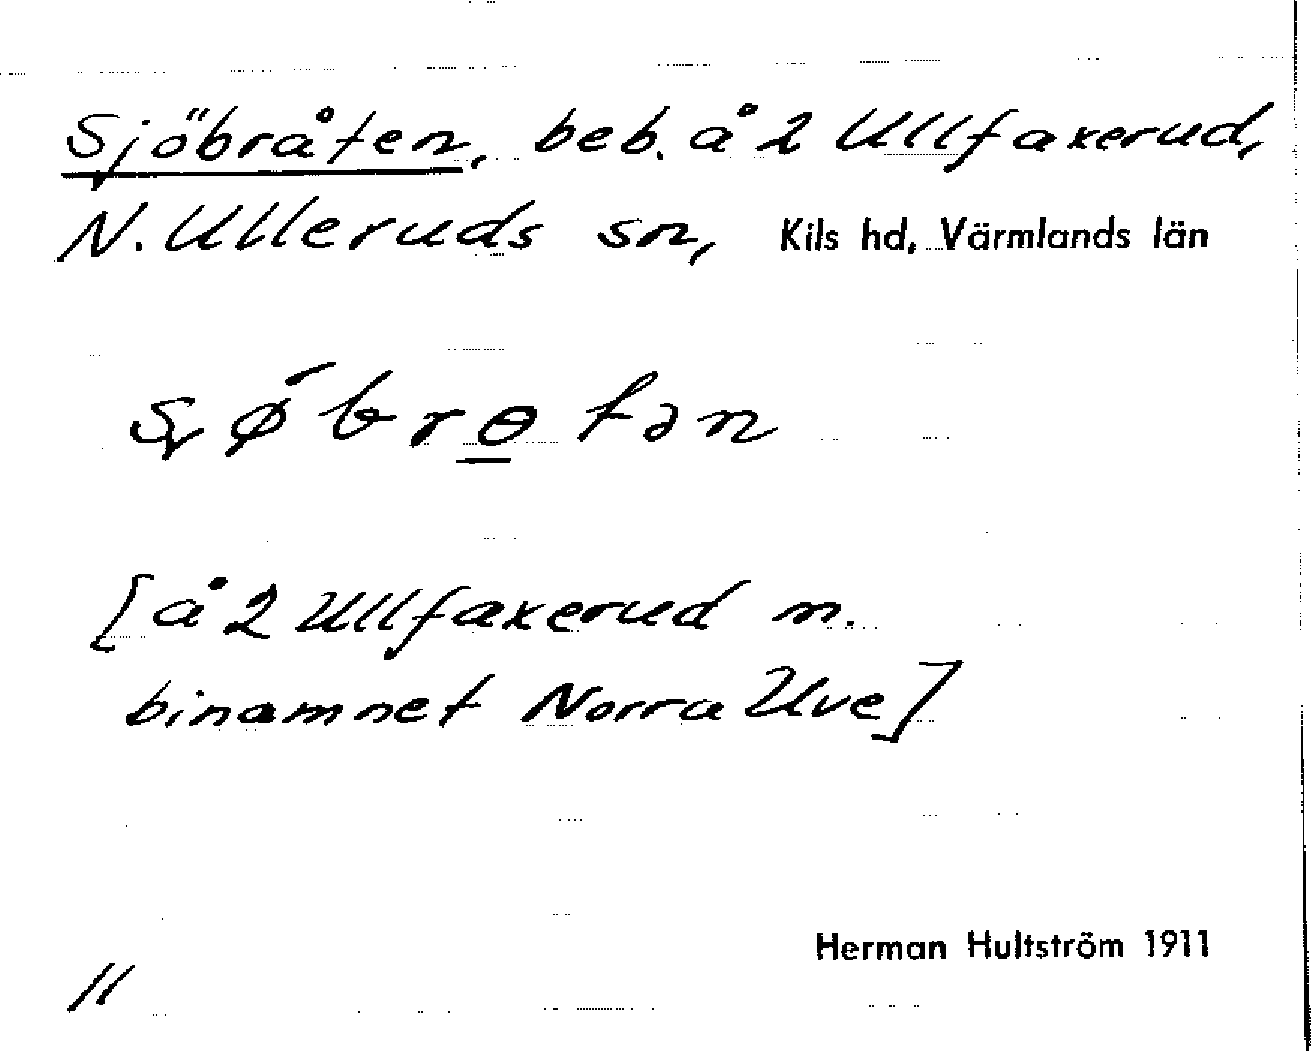 Sjöbråten, beb. å 2 Ullfaxerud,
N. Ulleruds sn, Kils hd, Värmlands län
[å 2 Ullfaxerud m.
binamnet Norra Ulve]
Herman Hultström 1911
11